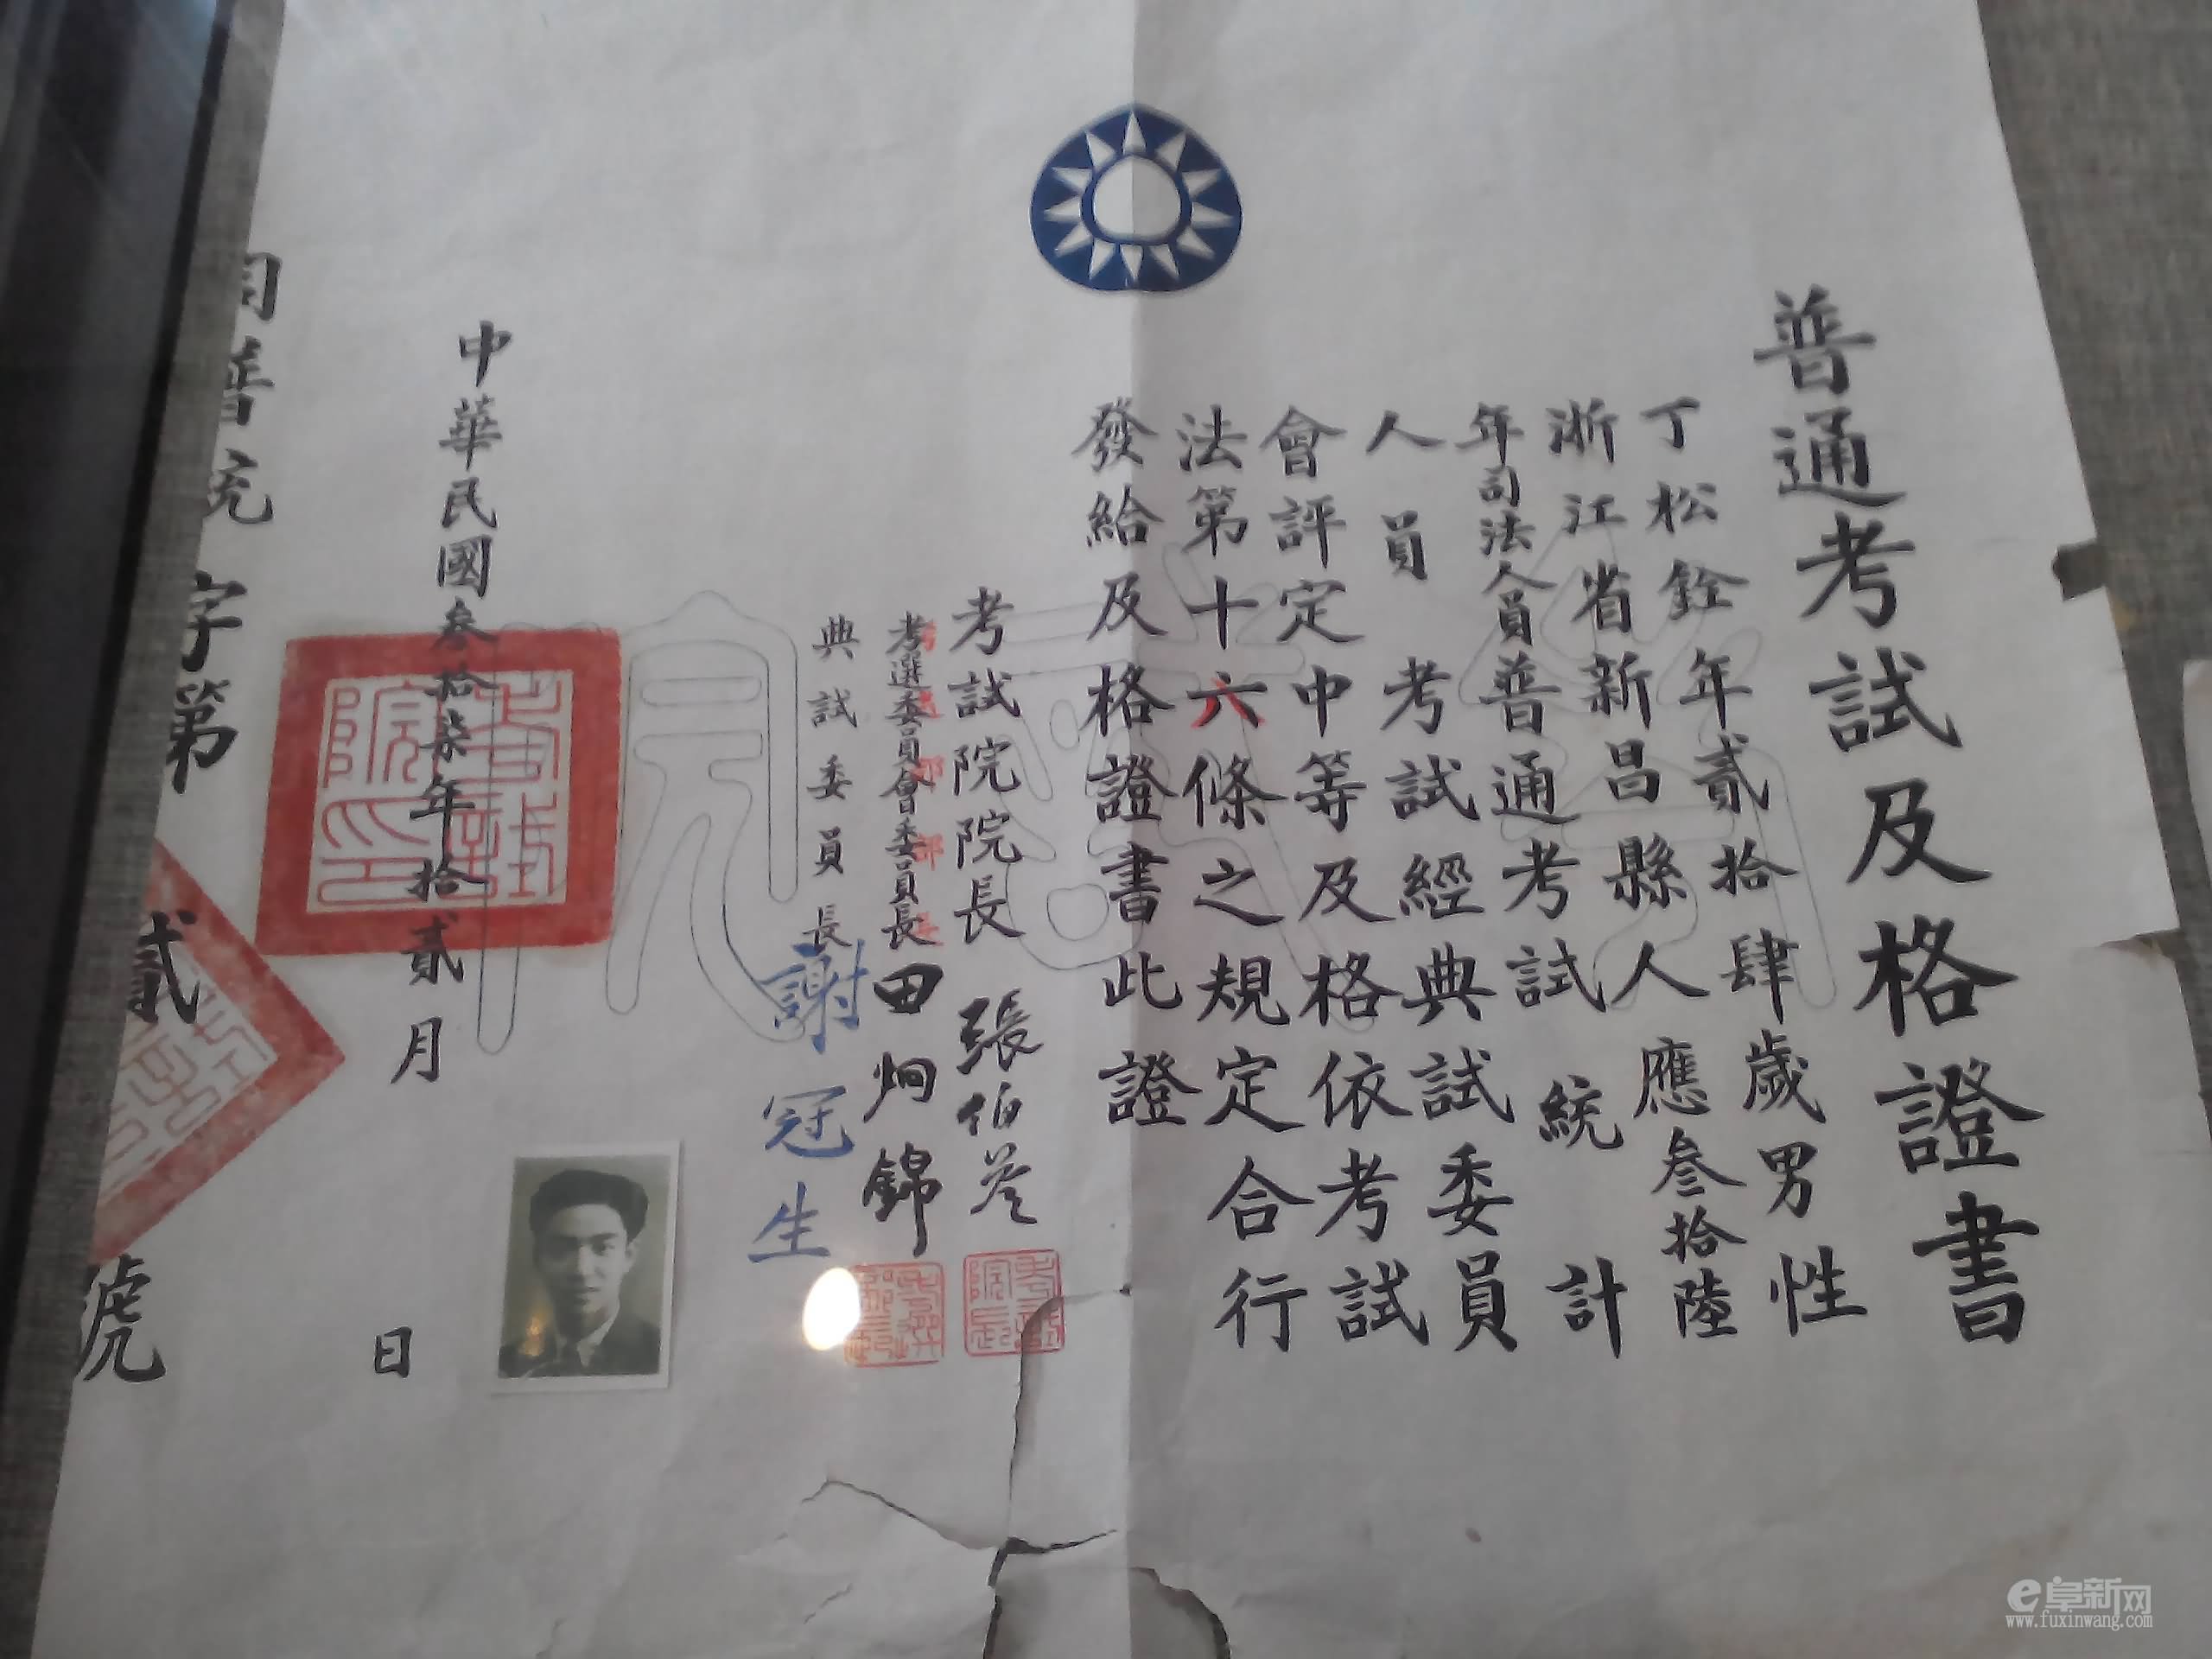 普通考試及格證書
丁松銓年貳拾肆歲男性
浙江省新昌縣人應叁拾陸
年司法人員普通考試統計
人員考試經典試委員
會評定中等及格依考試
法第十六條之規定合行
發給及格證書此證
考試院院長張伯苓
考選委員會委員長田炯錦
典試委員長謝冠生
中華民國叁拾柒年拾貳月日
字第貳號
考試院
考試院印
e阜新网
www.fuxinwang.com